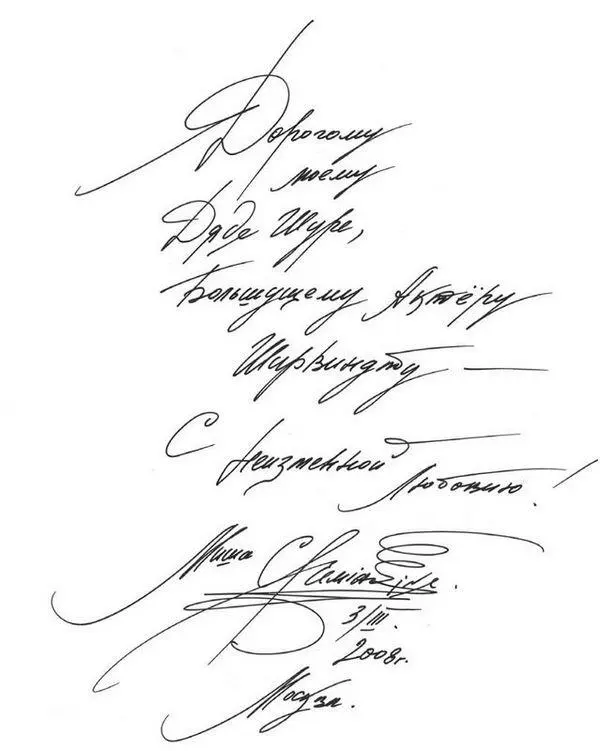 Дорогому
моему
Дяде Шуре,
Большущему Актёру
Ширвиндту —
С неизменной
Любовию!
Миша
3/III
2008г.
Москва.